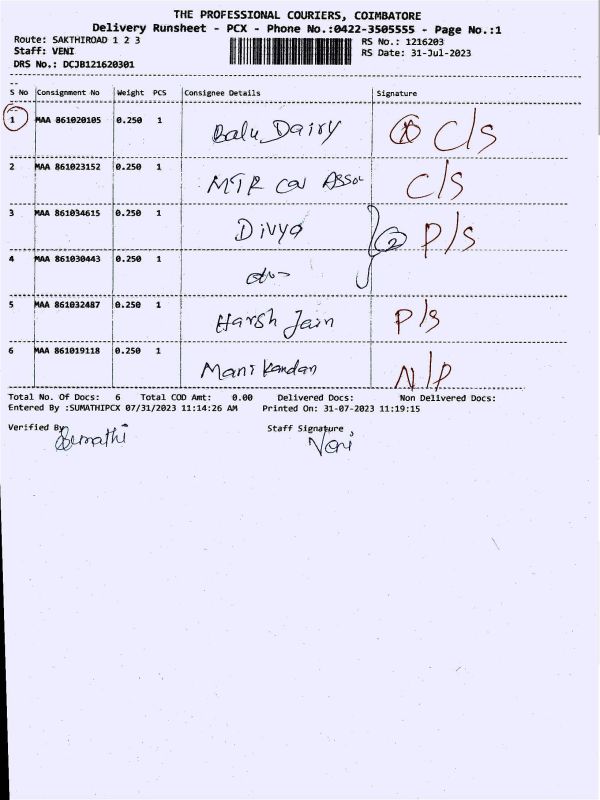 THE PROFESSIONAL COURIERS, COIMBATORE
Delivery Runsheet - PCX - Phone No.:0422-3505555 - Page No.:1
Route: SAKTHIROAD 1 2 3 RS No.: 1216203
Staff: VENI RS Date: 31-Jul-2023
DRS No.: DCJB121620301
S No Consignment No Weight PCS Consignee Details Signature
1 MAA 861020105 0.250 1 Balu Dairy C/S
2 MAA 861023152 0.250 1 MTR Assoc C/S
3 MAA 861034615 0.250 1 Divya
4 MAA 861030443 0.250 1 (2) P/S
5 MAA 861032487 0.250 1 Harsh Jain P/S
6 MAA 861019118 0.250 1 Manikandan N/P
Total No. Of Docs: 6 Total COD Amt: 0.00 Delivered Docs: Non Delivered Docs:
Entered By :SUMATHIPCX 07/31/2023 11:14:26 AM Printed On: 31-07-2023 11:19:15
Verified By Sumathi Staff Signature Veni